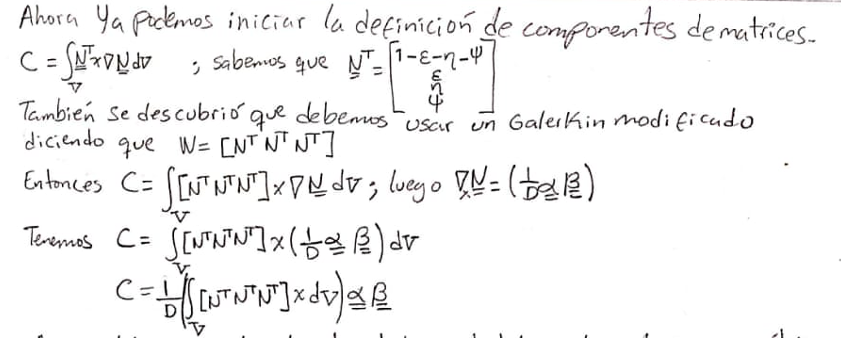 Ahora Ya podemos iniciar la definición de componentes de matrices.
C = ∫_V N^T x ∇N dv ; sabemos que N^T = [1-ε-η-ψ ε η ψ]
También se descubrió que debemos usar un Galerkin modificado
diciendo que W = [N^T N^T N^T]
Entonces C = ∫_V [N^T N^T N^T] x ∇N dv ; luego ∇_x N = (1/D α β)
Tenemos C = ∫_V [N^T N^T N^T] x (1/D α β) dv
C = 1/D (∫_V [N^T N^T N^T] x dv) α β